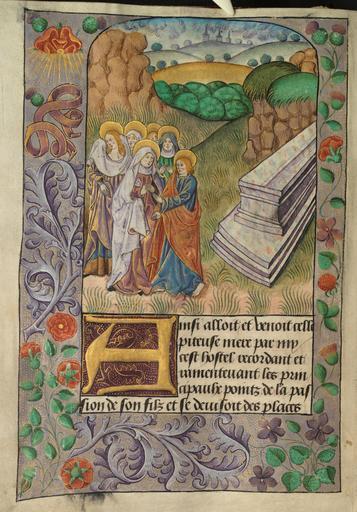 Ainsi alloit et venoit celle
piteuse mere par my
cest hostel recordant et
ramentevant les prin
cipaulx pointz de la pas
sion de son filz et se deuisoit des places